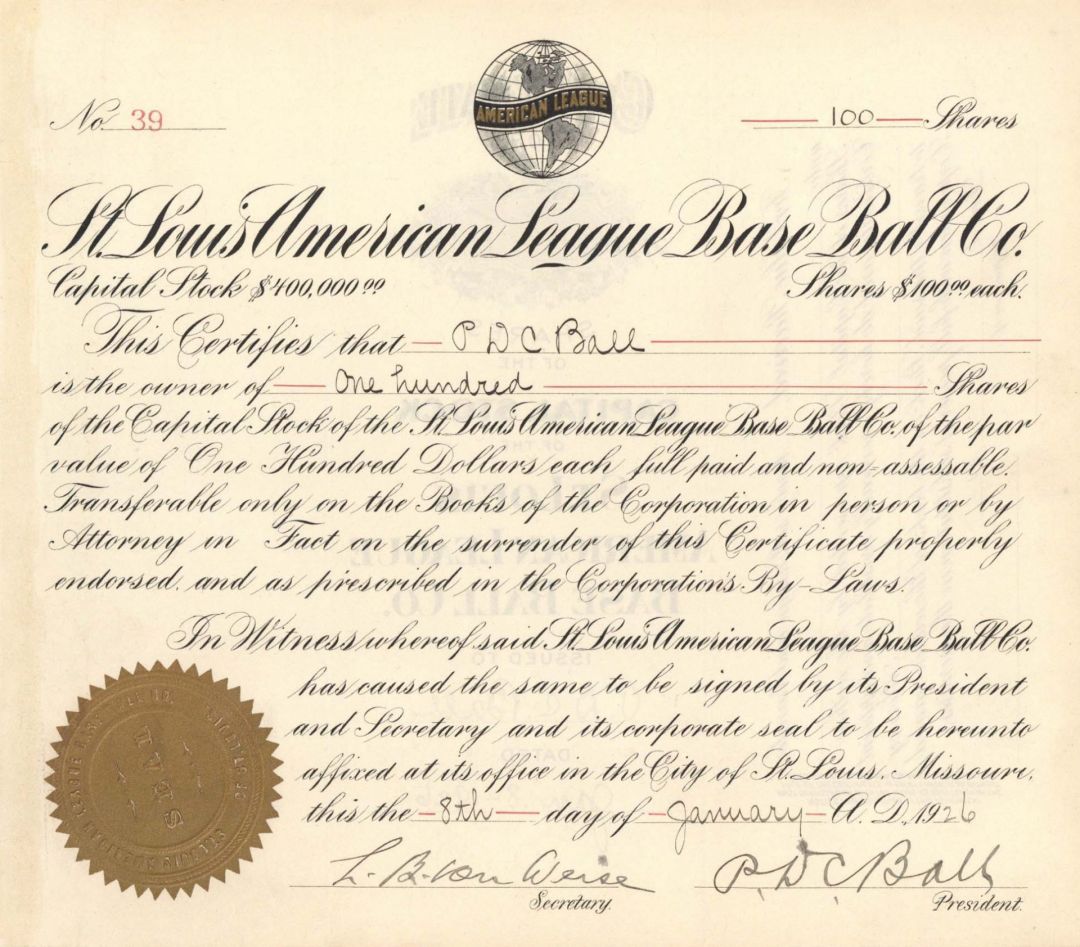 AMERICAN LEAGUE
No. 39
100 Shares
St. Louis American League Base Ball Co.
Capital Stock $400,000.00 Shares $100.00 each.
This Certifies that P D C Ball
is the owner of One hundred Shares
of the Capital Stock of the St. Louis American League Base Ball Co. of the par
value of One Hundred Dollars each full paid and non-assessable.
Transferable only on the Books of the Corporation in person or by
Attorney in Fact on the surrender of this Certificate properly
endorsed, and as prescribed in the Corporation's By-Laws.
In Witness whereof, said St. Louis American League Base Ball Co.
has caused the same to be signed by its President
and Secretary and its corporate seal to be hereunto
affixed at its office in the City of St. Louis, Missouri,
this the 8th day of January A. D. 1926
L. B. von Weise P. D C Ball
Secretary. President.
SEAL